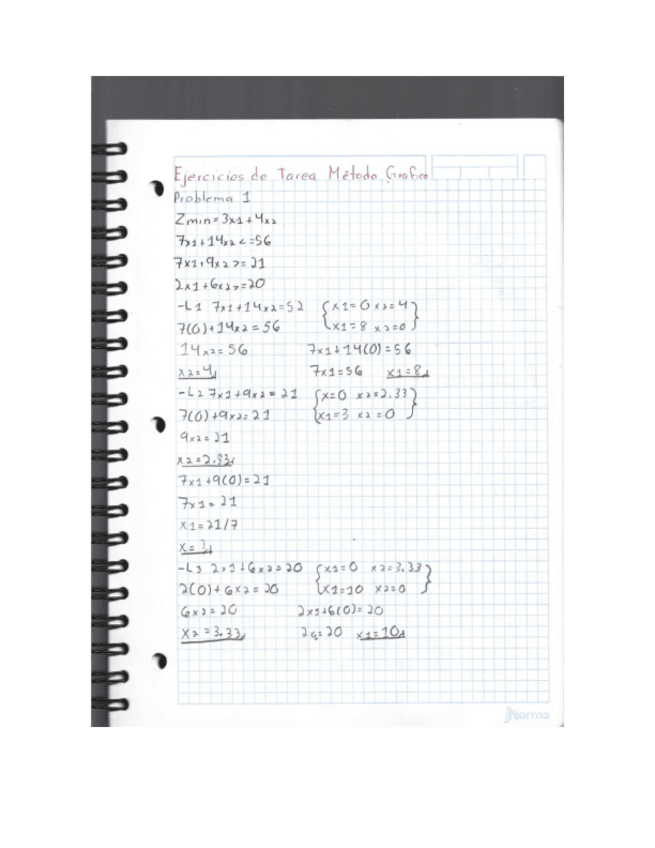 Ejercicios de Tarea Método Grafico
Problema 1
Zmin=3x1+4x2
7x1+14x2<=56
7x1+9x2>=21
2x1+6x2>=20
-L1 7x1+14x2=52 {x1=0 x2=4
7(0)+14x2=56 x1=8 x2=0}
14x2=56 7x1+14(0)=56
x2=4 7x1=56 x1=8
-L2 7x1+9x2=21 {x=0 x2=2.33
7(0)+9x2=21 x1=3 x2=0}
9x2=21
x2=2.33
7x1+9(0)=21
7x1=21
x1=21/7
x=3
-L3 2x1+6x2=20 {x1=0 x2=3.33
2(0)+6x2=20 x1=10 x2=0}
6x2=20 2x1+6(0)=20
x2=3.33 =20 x1=10
Norma